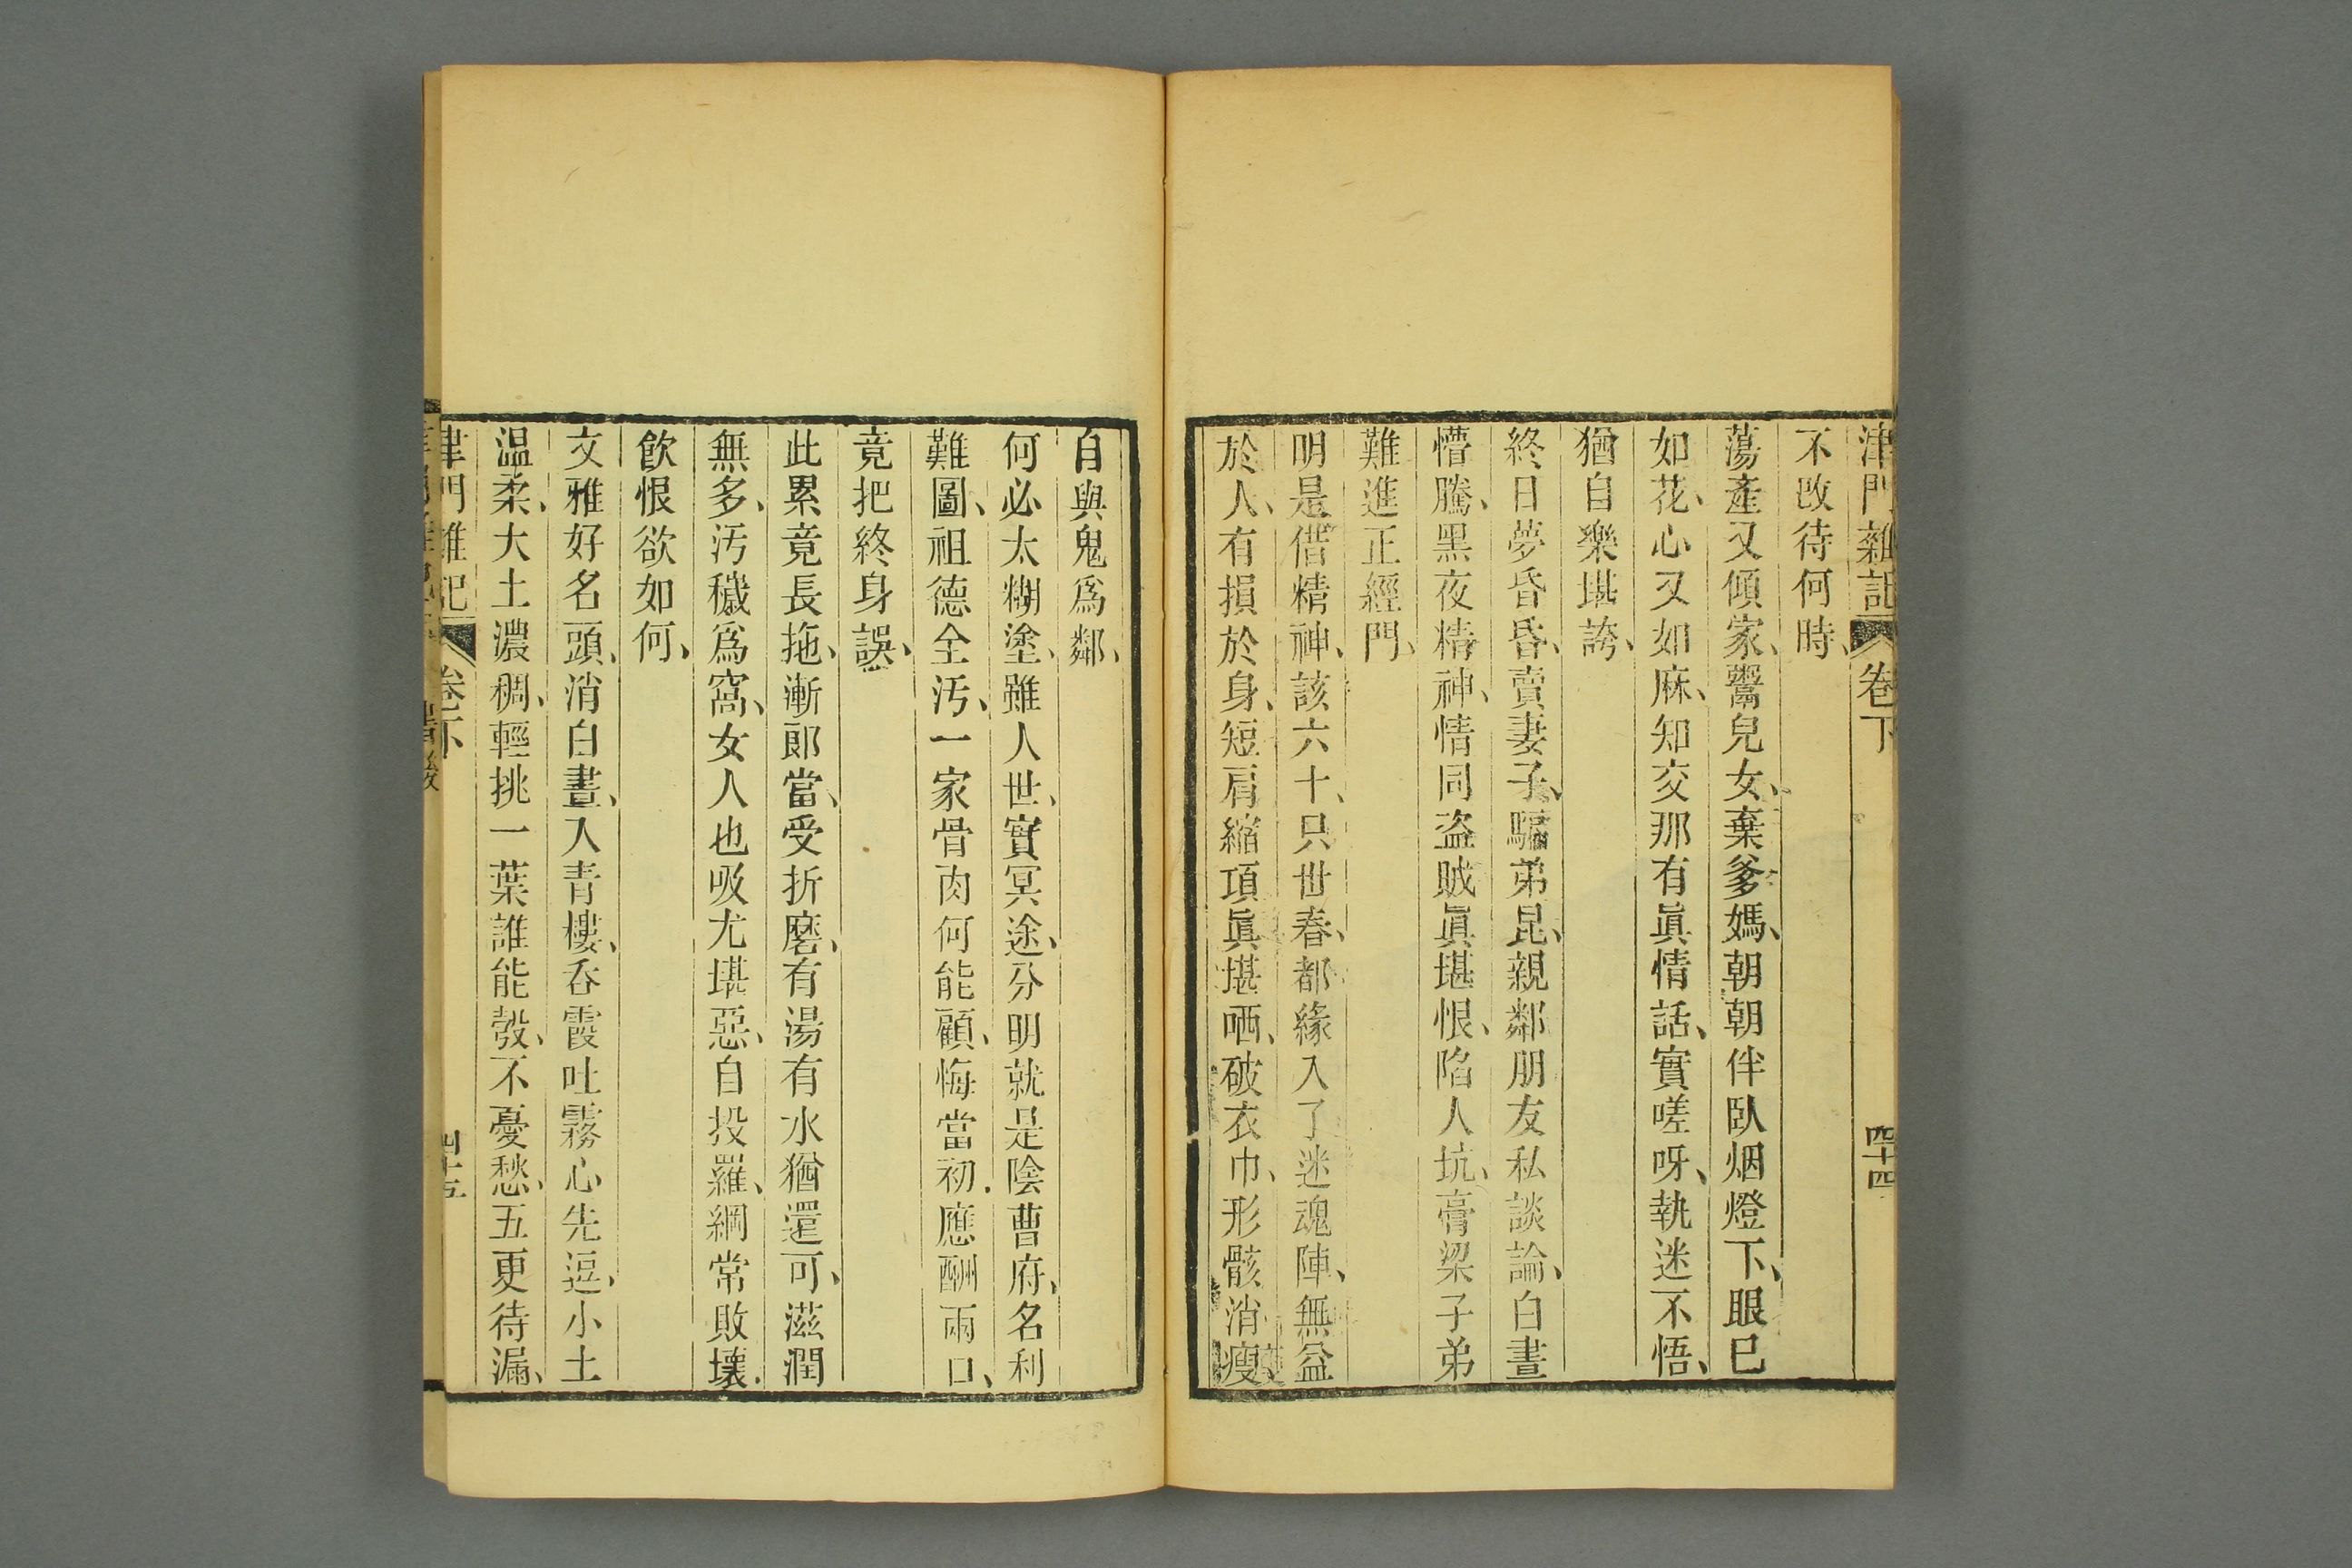 津門雜記 卷下 四十四
不改待何時、
蕩產又傾家、鬻兒女、棄爹媽、朝朝伴臥烟燈下、眼巳
如花、心又如麻、知交那有眞情話、實嗟呀、執迷不悟、
猶自樂堪誇、
終日夢昏昏、賣妻子、騙弟昆、親鄰朋友私談論、白晝
懵騰、黑夜精神、情同盗賊眞堪恨、陷人坑、膏粱子弟
難進正經門、
明是借精神、該六十、只世春、都緣入了迷魂陣、無益
於人、有損於身、短肩縮項眞堪哂、破衣巾、形骸消瘦
自與鬼爲鄰、
何必太糊塗、雖人世、實冥途、分明就是陰曹府、名利
難圖、祖德全汚、一家骨肉何能顧、悔當初、應酬兩口、
竟把終身誤、
此累竟長拖、漸郎當、受折磨、有湯有水猶還可、滋潤
無多、汚穢爲窩、女人也吸尤堪惡、自投羅、綱常敗壞、
飮恨欲如何、
文雅好名頭、消白晝、入青樓、吞霞吐霧心先逗、小土
温柔、大土濃稠、輕挑一葉誰能彀、不憂愁、五更待漏、
津門雜記 卷下 四十五